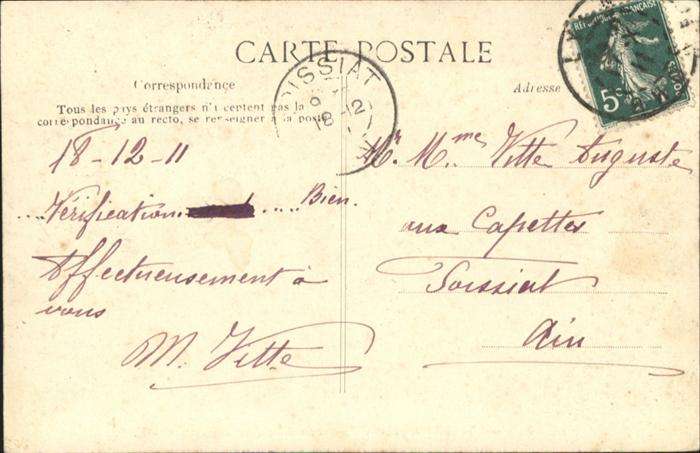 CARTE POSTALE
Correspondance
Tous les pays étrangers n'acceptent pas la
correspondance au recto, se renseigner à la poste
Adresse
FOISSIAT
9
18 12
RÉPUBLIQUE FRANÇAISE
5c
POSTES
18-12-11
Vérification Bien.
Affectueusement à
vous
M. Vitte
Mr. Mme Vitte Auguste
aux Capettes
Foissiat
Ain